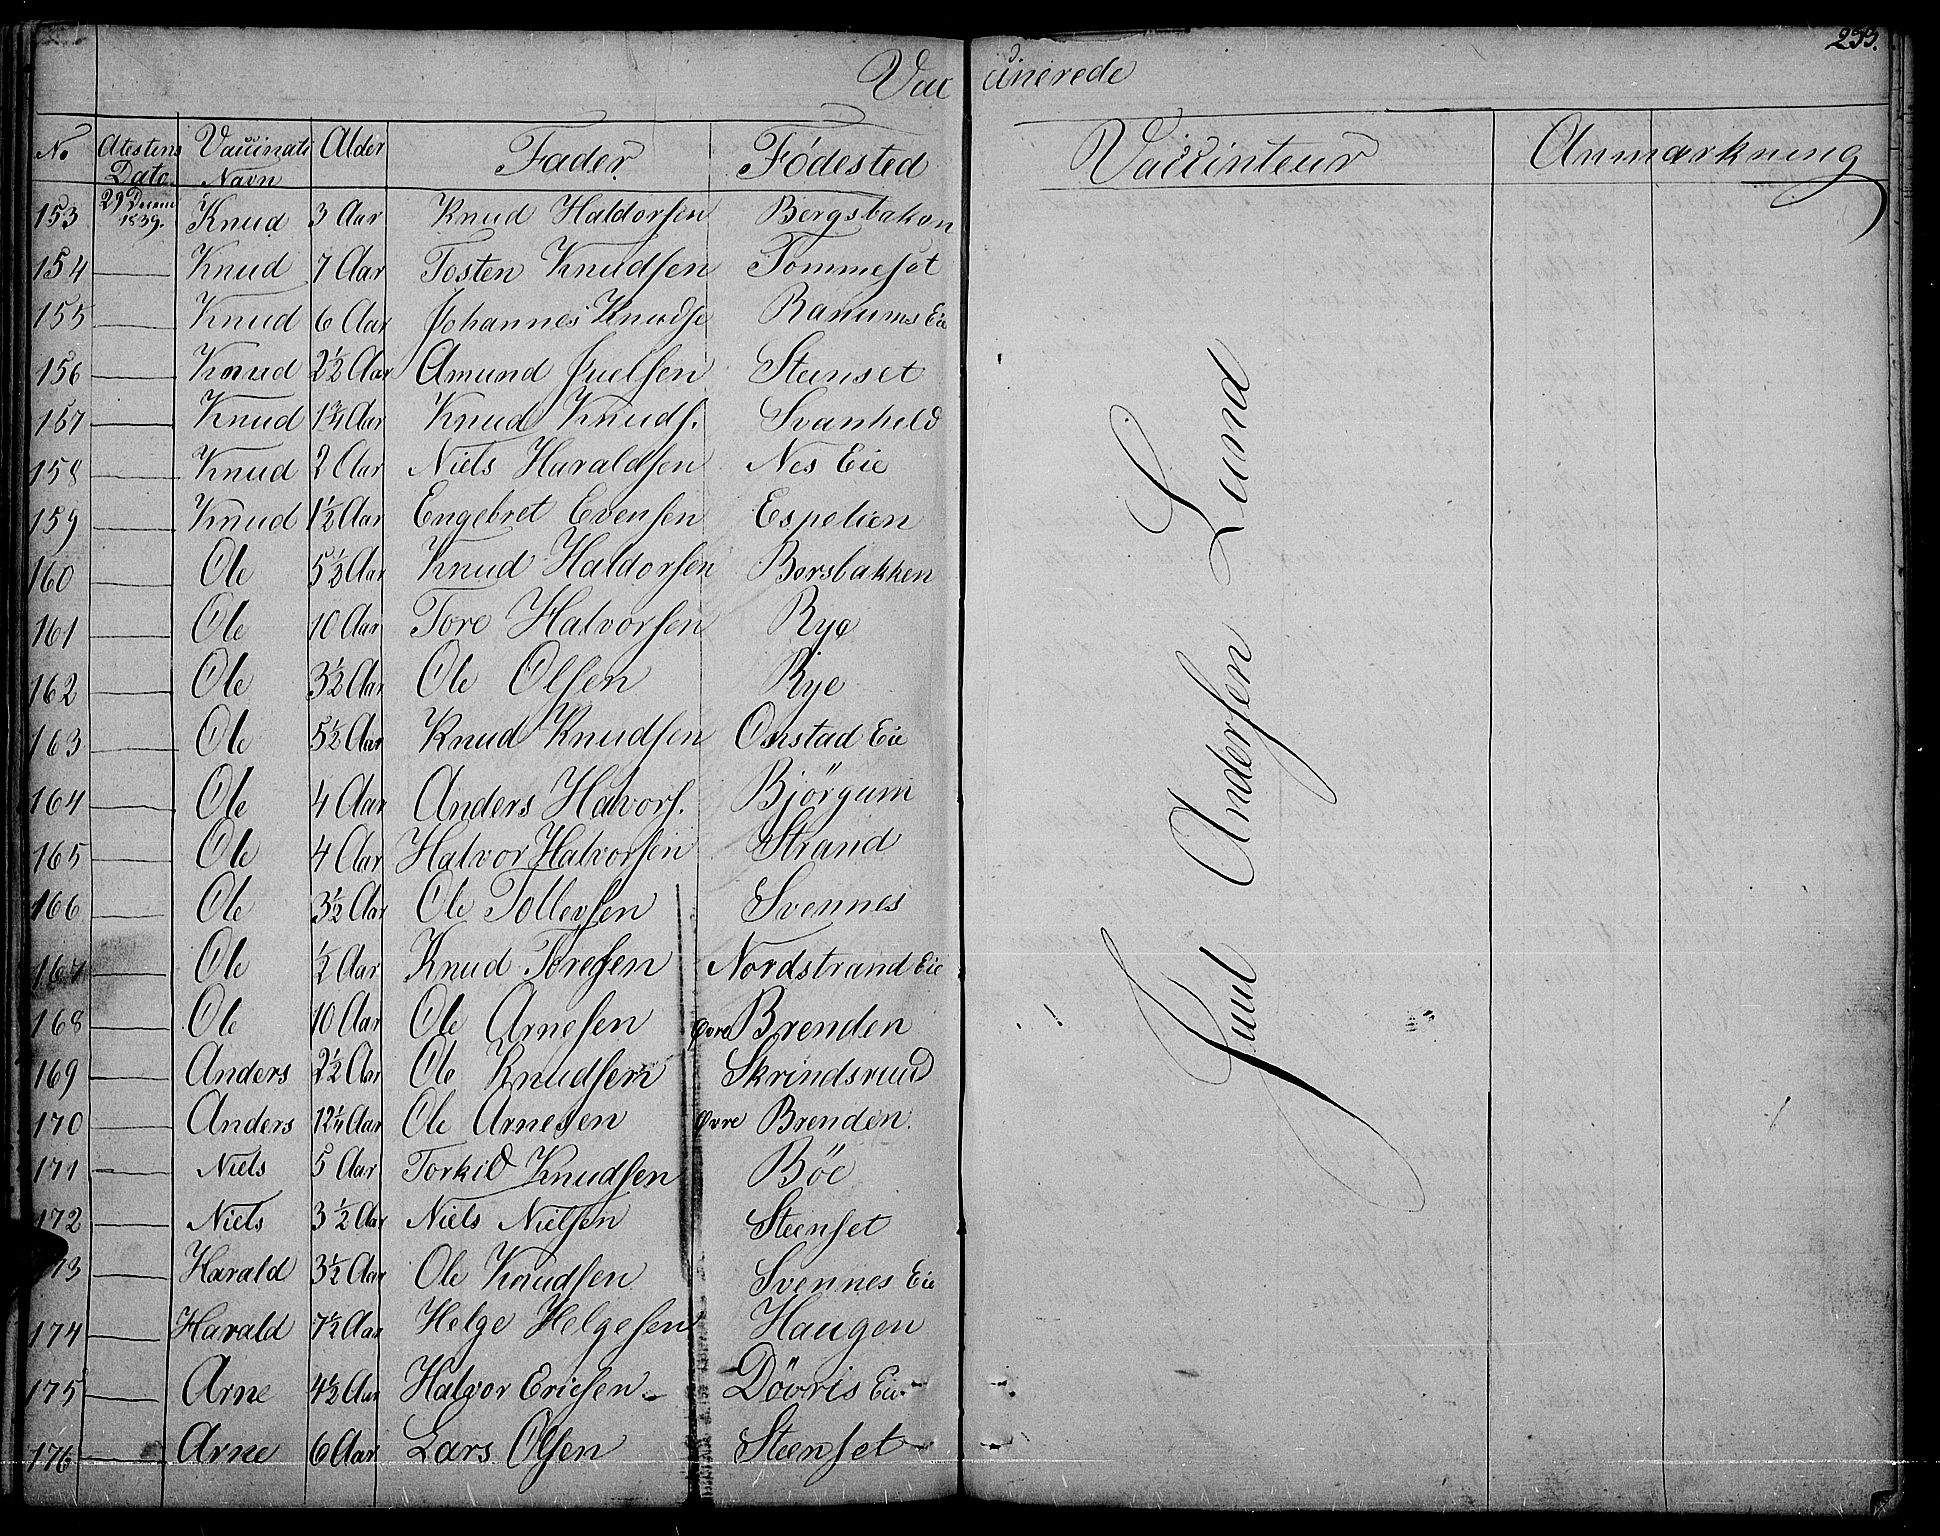 233.
Vaccinerede
No Atestens Dato Vaccinati Navn Alder Fader Födested Vaccinteur Anmærkning
153 29 Decem 1839. Knud 3 Aar Knud Haldorsen Bergsbakon
154 — Knud 7 Aar Tosten Knudsen Tommeset
155 — Knud 6 Aar Johannes Knudse Ranums Eie
156 — Knud 2½ Aar Amund Juelsen Steenset
157 — Knud 1¾ Aar Knud Knuds. Svanheld
158 — Knud 2 Aar Niels Haraldsen Nes Eie
159 — Knud 1½ Aar Engebret Evensen Espelien
160 — Ole 5½ Aar Knud Haldorsen Borsbakken
161 — Ole 10 Aar Tore Halvorsen Rye
162 — Ole 3½ Aar Ole Olsen Rye
163 — Ole 5½ Aar Knud Knudsen Onstad Eie
164 — Ole 4 Aar Anders Halvors. Björgum
165 — Ole 4 Aar Halvor Halvorsen Strand
166 — Ole 3½ Aar Ole Tollevsen Svennes
167 — Ole ½ Aar Knud Toresen Nordstrand Eie
168 — Ole 10 Aar Ole Arnesen øvre Brenden
169 — Anders 2½ Aar Ole Knudsen Skrindsrud
170 — Anders 12¼ Aar Ole Arnesen Øvre Brenden.
171 — Niels 5 Aar Torkild Knudsen Böe
172 — Niels 3½ Aar Niels Nielsen Steenset
173 — Harald 3½ Aar Ole Knudsen Svennes Eie
174 — Harald 7½ Aar Helge Helgesen Haugen
175 — Arne 4½ Aar Halvor Ericsen Dövris Eie
176 — Arne 6 Aar Lars Olsen Steenset
Juul Andersen Lund